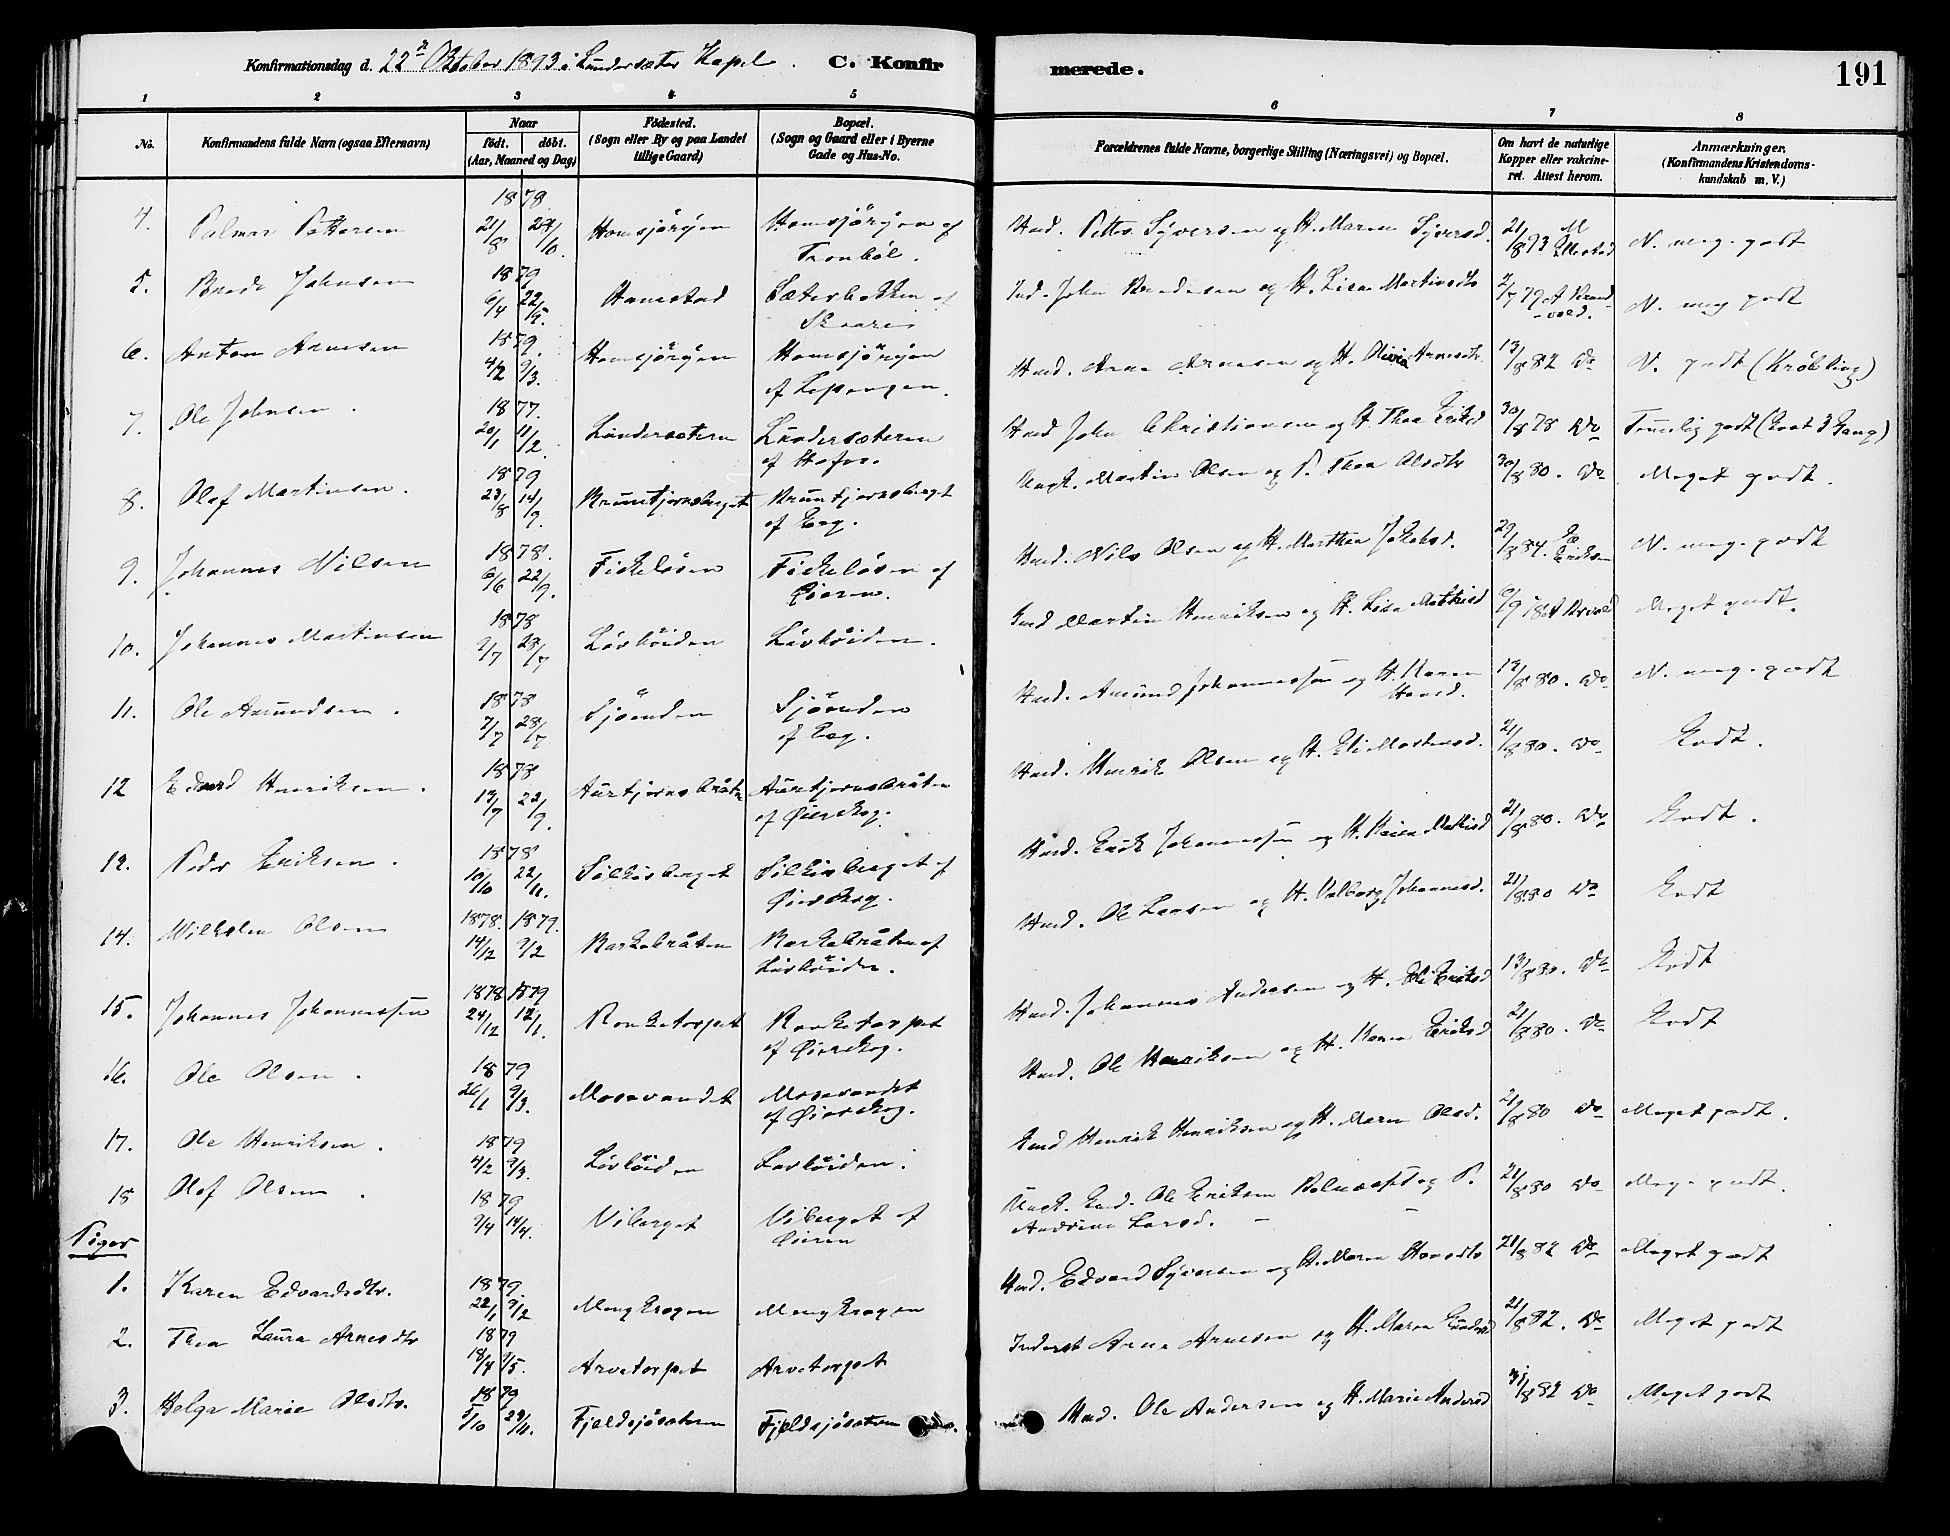 Konfirmationsdag d. 22de Oktober 1893 i Lundersæter Kapel. C. Konfirmerede. 191
1 2 3 4 5 6 7 8
No. Konfirmandens fulde Navn (ogsaa Efternavn) Naar født. døbt. (Aar, Maaned og Dag) Fødested. (Sogn eller By og paa Landet tillige Gaard) Bopæl. (Sogn og Gaard eller i Byerne Gade og Hus-No. Forældrenes fulde Navne, borgerlige Stilling (Næringsvei) og Bopæl. Om havt de naturlige Kopper eller vakcineret. Attest herom. Anmærkninger. (Konfirmandens Kristendomskundskab m. V.)
4. Palmar Pettersen 1878 21/8 24/10. Homsjöröjen Homsjöröjen af Tronböl. Husm. Petter Syversen og H. Maren Syversd. 21/8 93 M N. meg. godt
5. Brede Johnsen 1879 6/4 22/5. Sæterbakken af Skaare John og H. Lisa Martinsdtr 2/7 79 N. meg godt
6. Anton Arnesen 1879. 4/2 9/3. Homsjöröjen Homsjöröjen af Husm. Arne Arnesen og H. Olivia Arnesdtr. 13/8 82 Do N. godt (Kröbling)
7. Ole Johnsen. 1877. 20/1 11/2. Lundersætern Lundersæteren Husm John Christiansen og H. Thea Eriksd 30/8 78 Do Temmelig godt (Læst 3 Gang)
8. Olof Martinsen. 1879 23/8 14/9. Bruntjernsberget Bruntjernsberget af Eeg. Ungk. Martin Olsen og P. Thea Olsdtr 30/8 80. Do Meget godt.
9. Johannes Nilsen 1878. 6/6 22/9. Fiskelösen Fiskelösen af Öieren. Husm. Nils Olsen og H. Marthea Jakobsd. 29/8 84. Eriksen N. meg. godt
10. Johannes Martinsen 1878 2/7 28/7 Lövhöiden Lövhöiden. Martin Henriksen og H. Lisa Mathisd 6/9 Meget godt.
11. Ole Amundsen. 1878 7/7 28/7 Sjöenden Sjöenden af Eeg. Husm. Amund Johannessen og H. Karen Hansd. 13/8 80. Do N. meg. godt
12 Edvard Henriksen. 1878 13/7 22/9. Aurtjernsbråten Aurtjernsbråten af Öierskog. Husm. Henrik Olsen og H. Eli Mortensd. 21/8 80. Do Godt.
12. Peder Eriksen. 1878 10/10 22/11. Silkisberget Silkisberget af Öierskog. Husm. Erik Johannessen og H. Kaisa Mathisd 21/8 80. Do Godt.
14. Wilhelm Olsen 1878. 1879. 14/12 9/2 Barkebråten Barkebråten af Lövhöiden. Husm. Ole Larsen og H. Valborg Johannesd. 21/8 80 Do Godt
15. Johannes Johannessen 1878 1879 24/12 12/1. Ronketorpet Ronketorpet af Öierskog. Husm. Johannes Andersen og H. Eli Eriksd 13/8 80. Do Godt
16. Ole Olsen. 1879 26/1 9/3. Mosevandet Mosevandet af Öierskog. Husm. Ole Henriksen og H. Karen Eriksd 21/8 80. Do Godt
17. Ole Henriksen. 1879 4/2 9/3. Lövhöiden Lövhöiden. Henrik Henriksen og H. Maren Olsd. 21/8 80 Do Meget godt.
18 Olof Olsen. 1879 3/4 14/4. Viberget Viberget af Öieren Ungk. Ole Eriksen og P. Andrine Larsd. 21/8 80 Do Mege godt.
Piger
1. Karen Edvardsdtr. 1879. 22/1 9/2 Mengkrogen Mengkrogen Husm. Edvard Syversen og H. Maren Hansdtr 21/8 82 Do Meget godt
2. Thea Laura Arnesdtr 1879 18/4 3/5. Arvetorpet Arvetorpet Inderst Arne Arnesen og H. Maren 21/8 82. Do Meget godt
3. Helga Marie Olsdtr. 1879 5/10 29/11. Fjeldsjösætern Fjeldsjösætern Husm. Ole Andersen og H. Marie Andersd 31/8 82 Do Meget godt